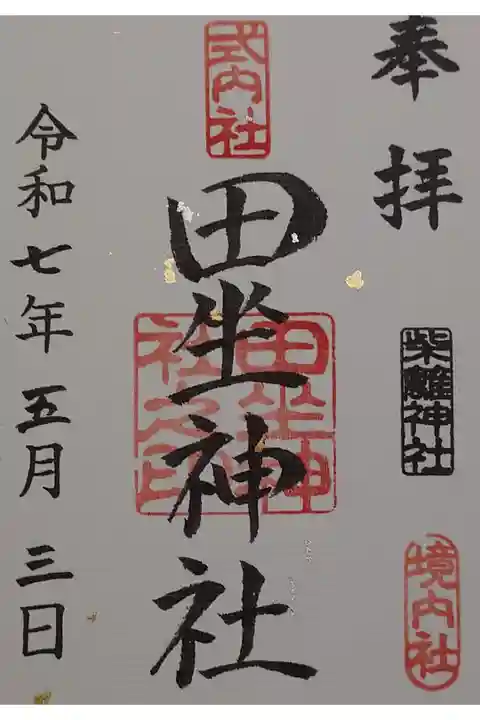 奉拝
柴籬神社
境内社
式内社
田坐神社
田坐神
社之印
令和七年五月三日